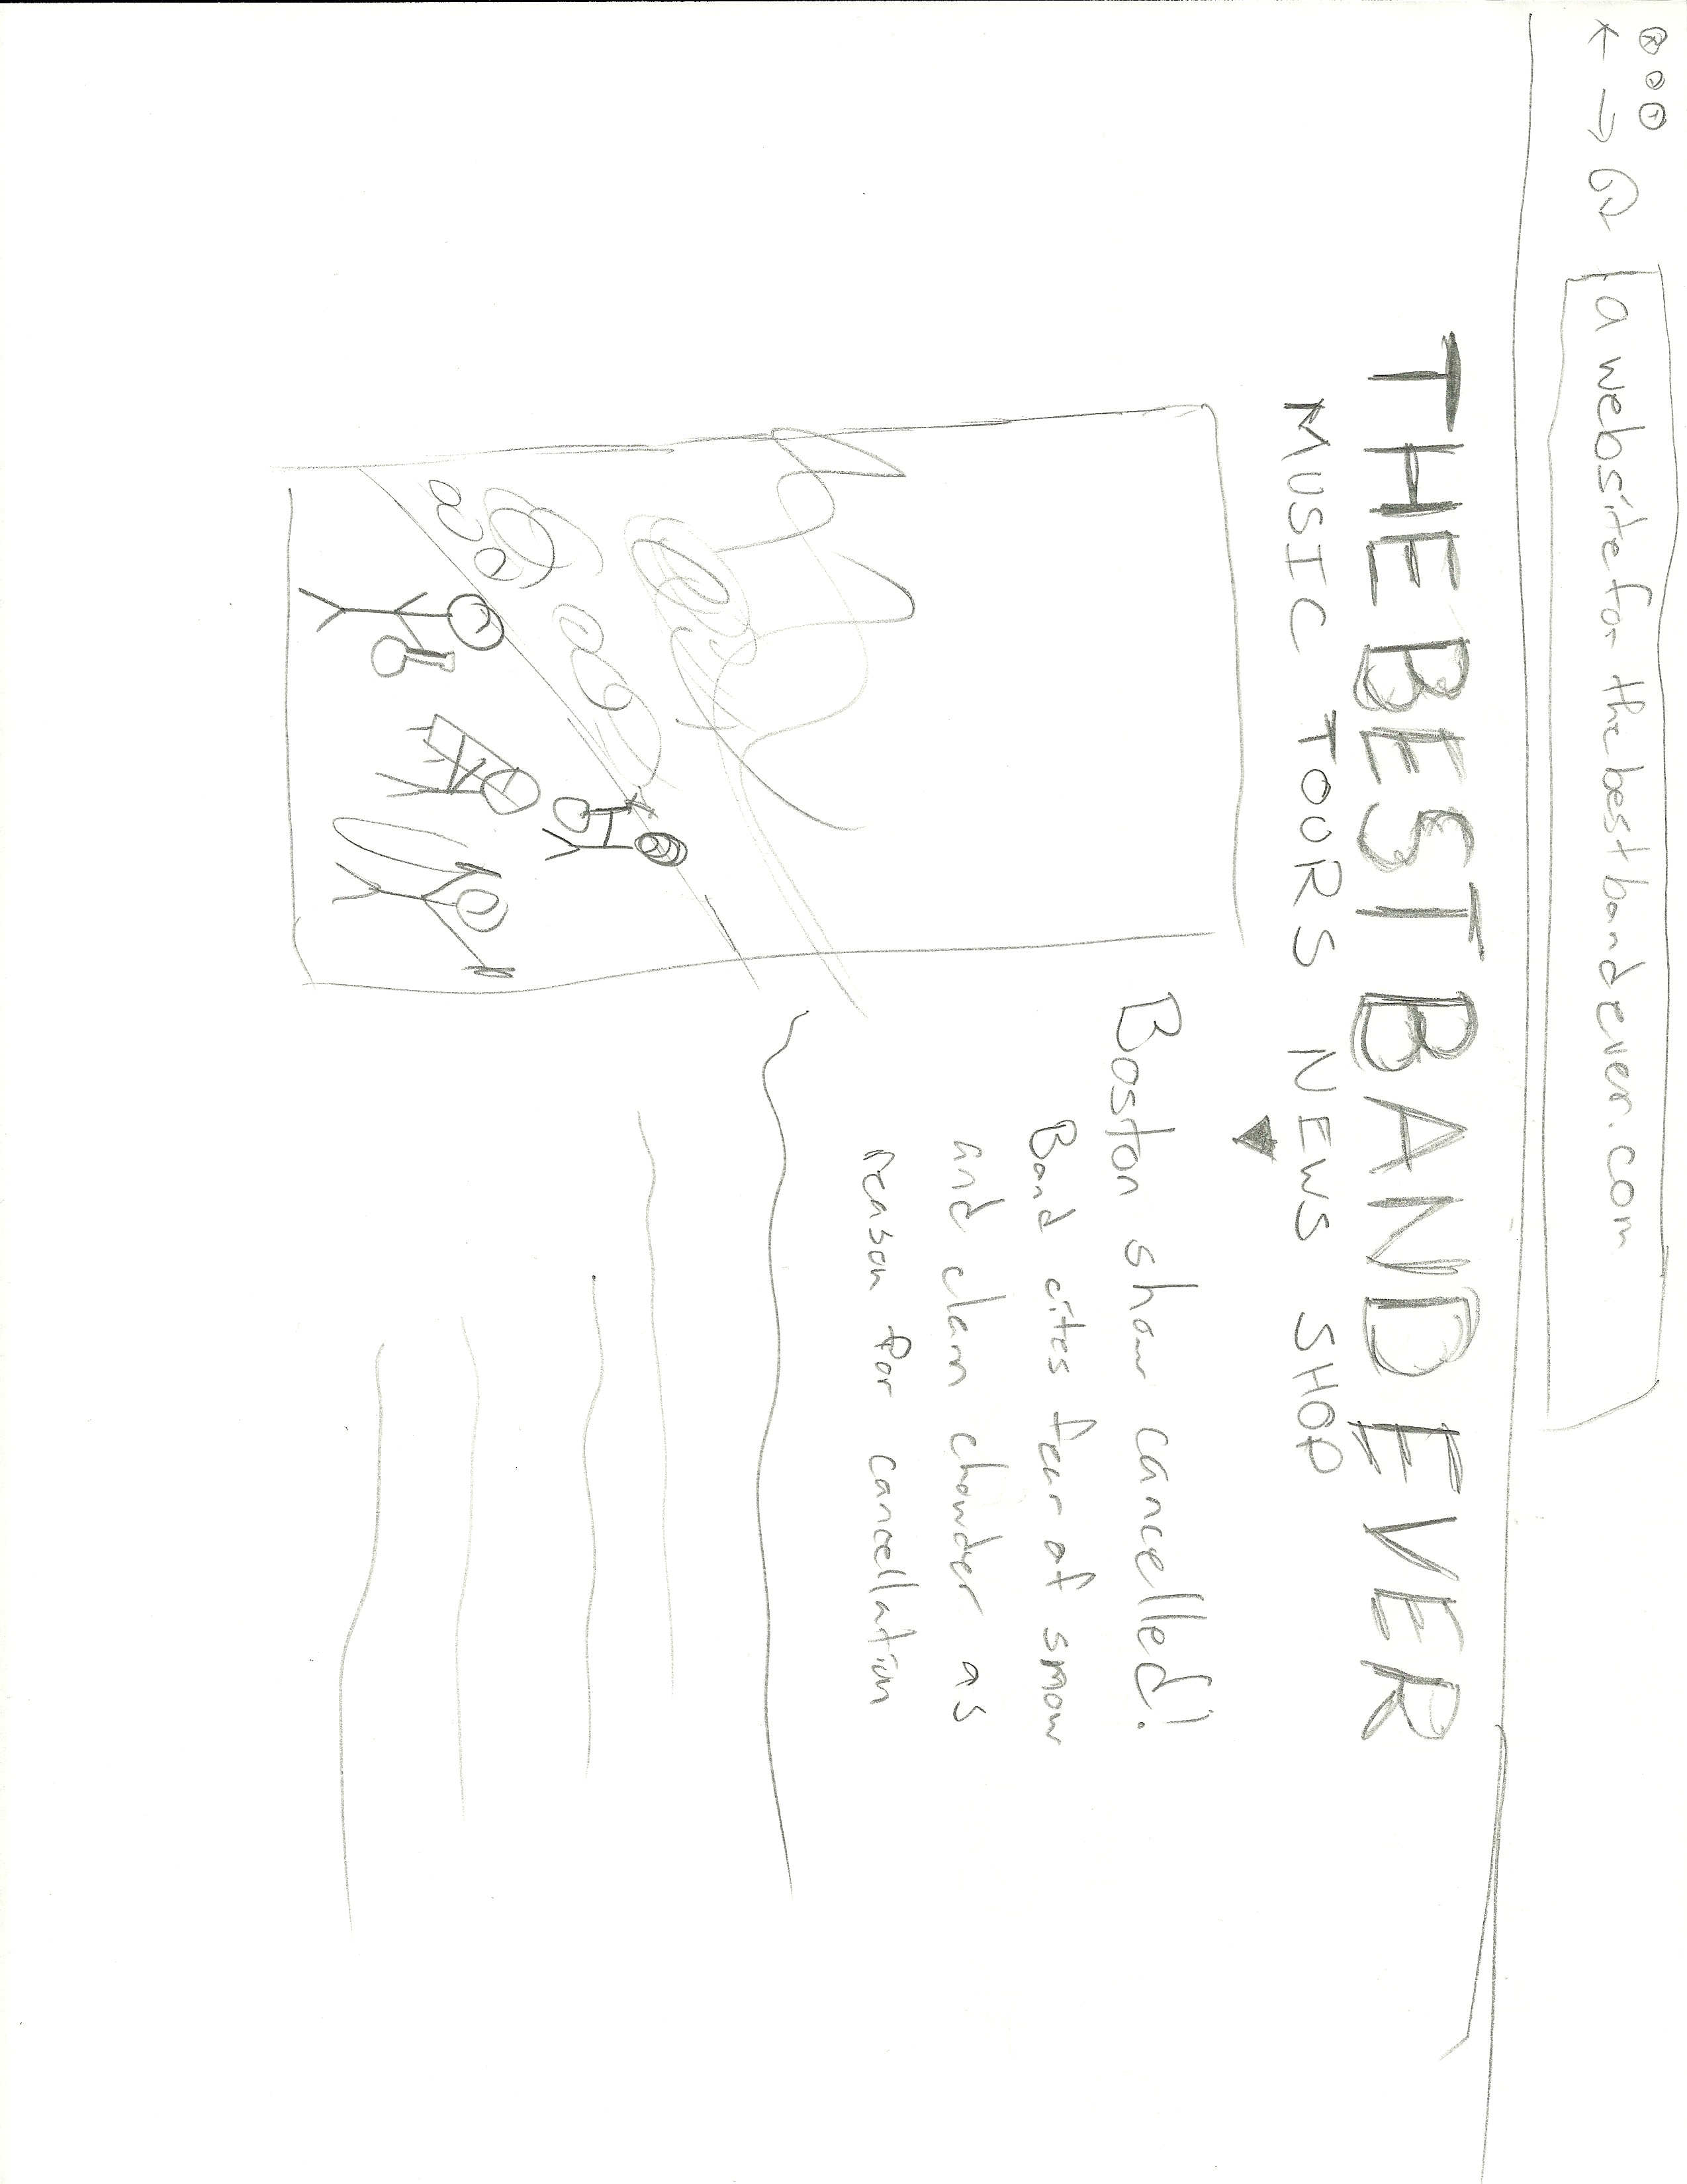 a website for the best band ever.com
THE BEST BAND EVER
MUSIC TOURS NEWS SHOP
Boston show cancelled!
Band cites fear of snow
and clam chowder as
reason for cancellation